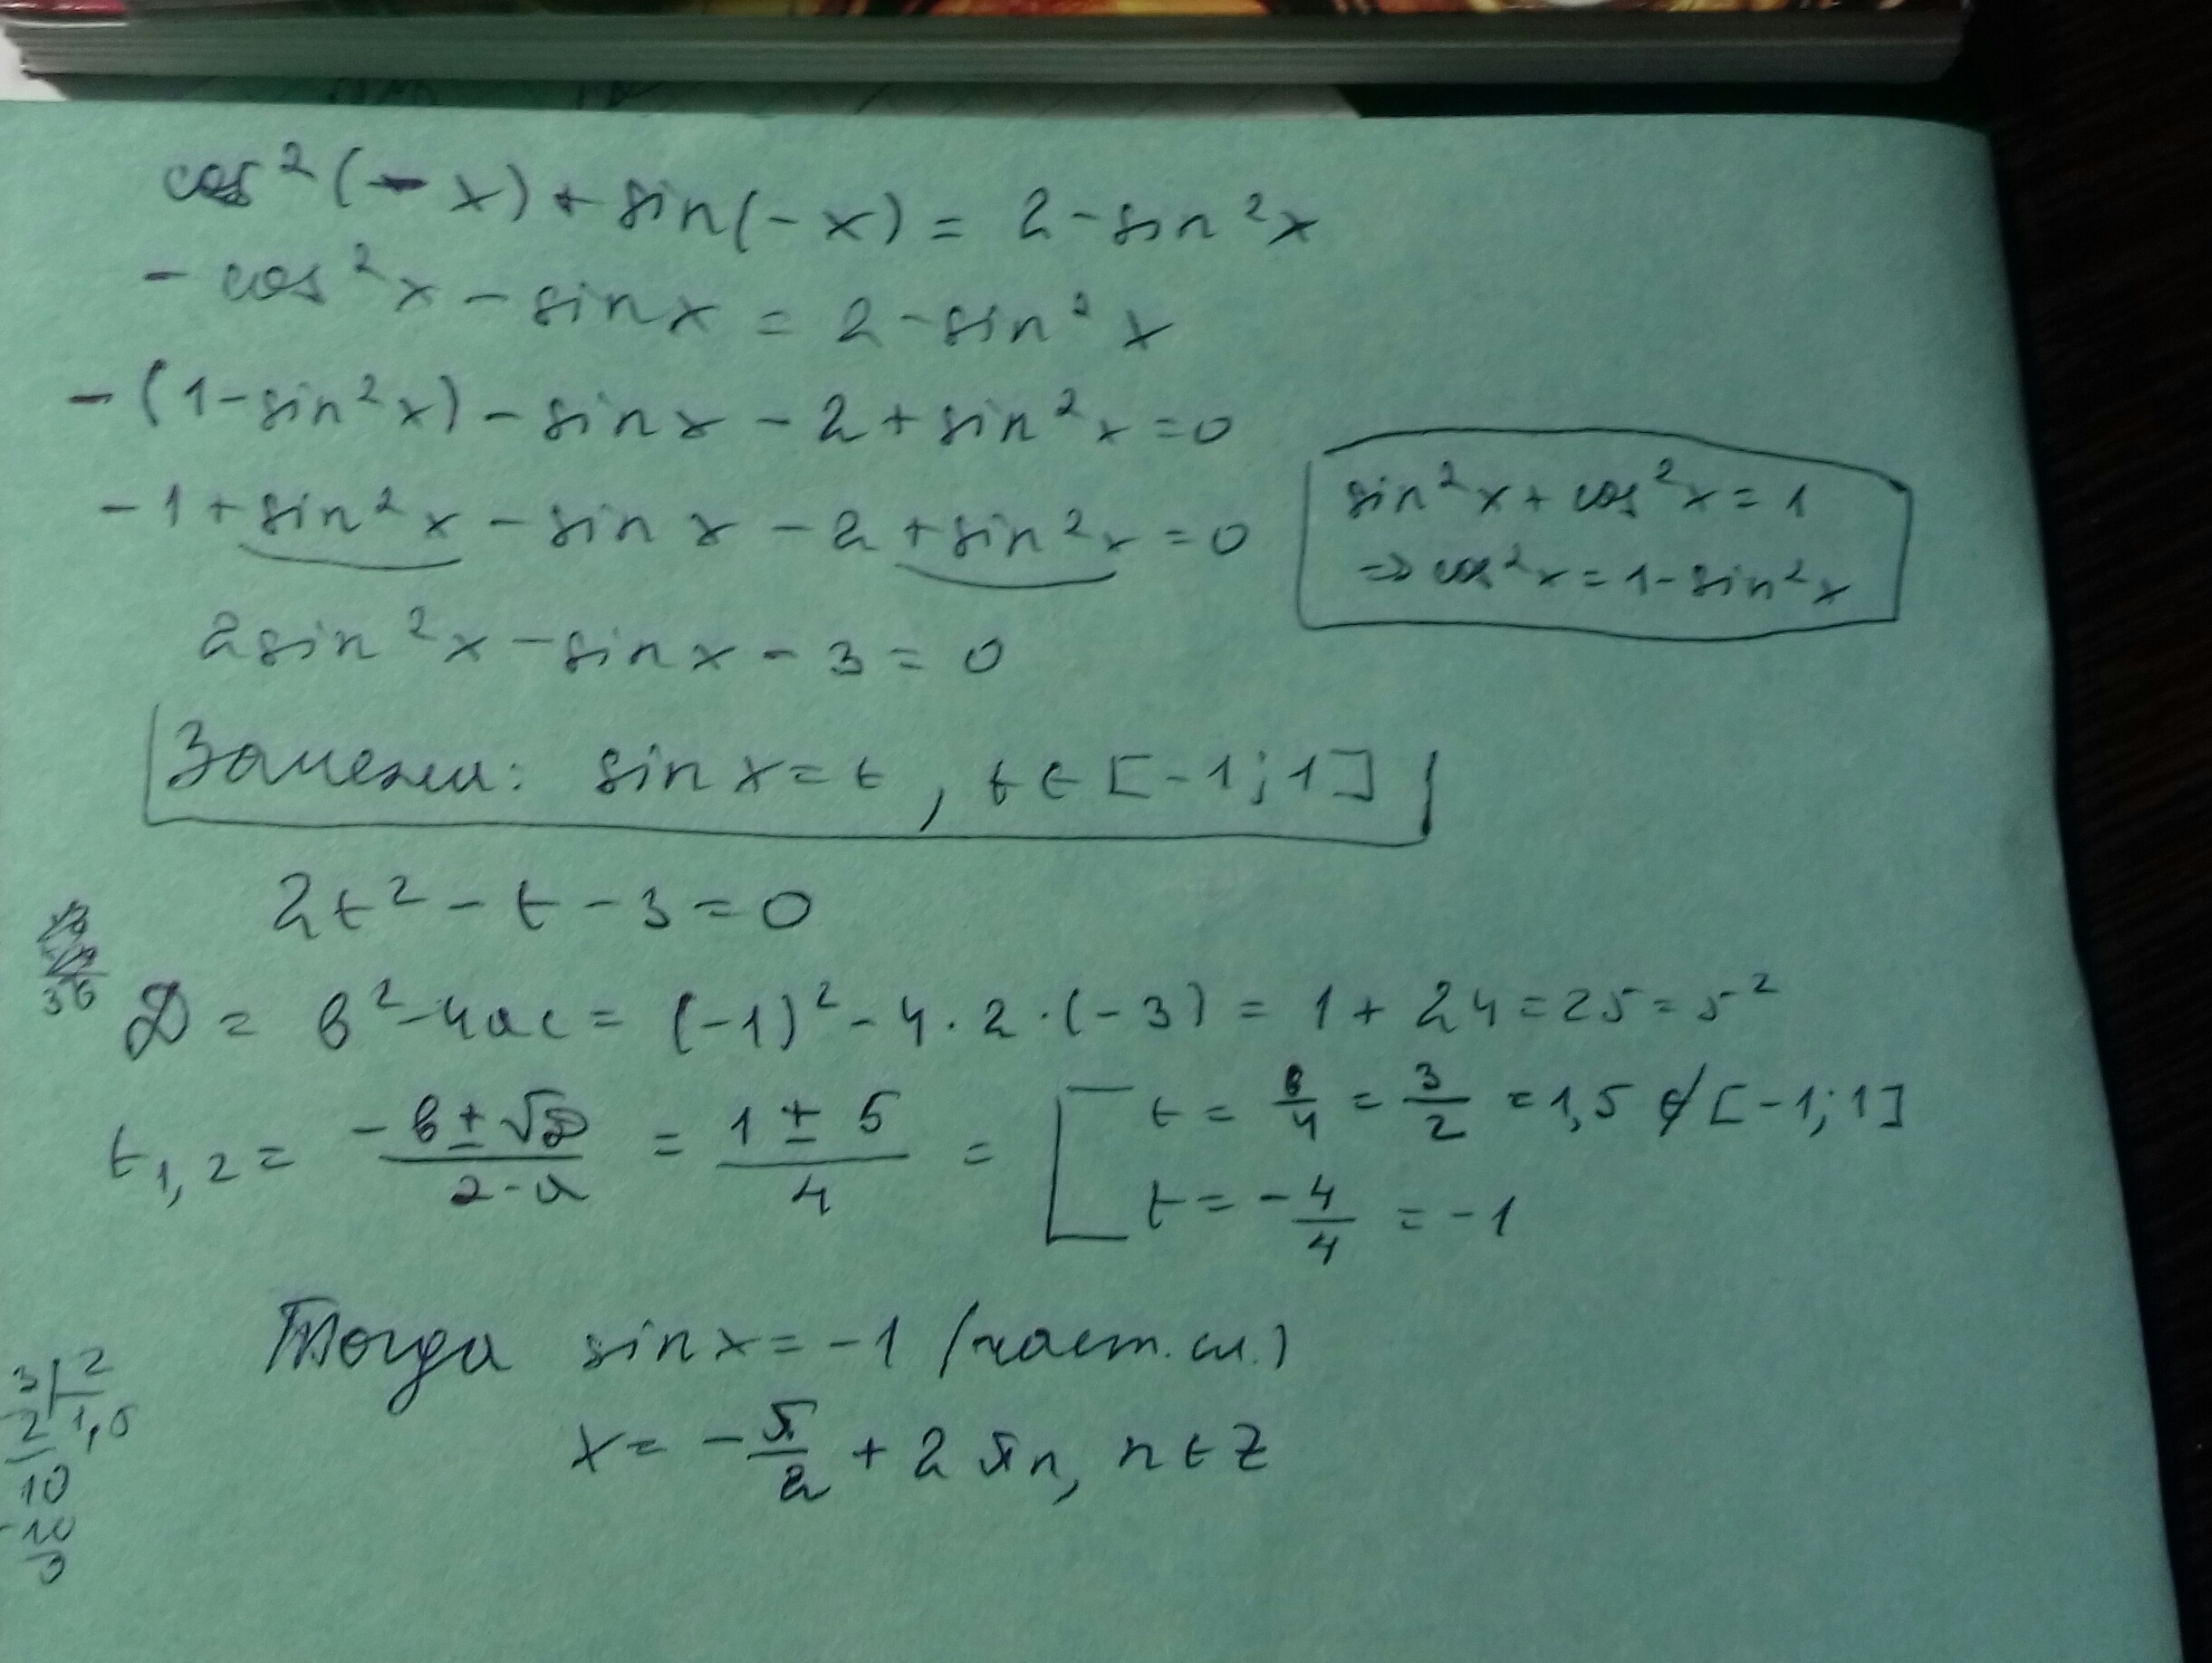 cos²(-x) + sin(-x) = 2 - sin²x
- cos²x - sinx = 2 - sin²x
- (1 - sin²x) - sinx - 2 + sin²x = 0
- 1 + sin²x - sinx - 2 + sin²x = 0
sin²x + cos²x = 1
⇒ cos²x = 1 - sin²x
2sin²x - sinx - 3 = 0
Замена: sinx = t, t ∈ [-1; 1]
2t² - t - 3 = 0
36
D = b² - 4ac = (-1)² - 4 · 2 · (-3) = 1 + 24 = 25 = 5²
t₁,₂ = (-b ± √D)/(2·a) = (1 ± 5)/4 = [ t = 6/4 = 3/2 = 1,5 ∉ [-1; 1]
t = -4/4 = -1
Тогда sinx = -1 (част. сл.)
x = -π/2 + 2πn, n ∈ Z
3 | 2
2 1,5
10
-10
0